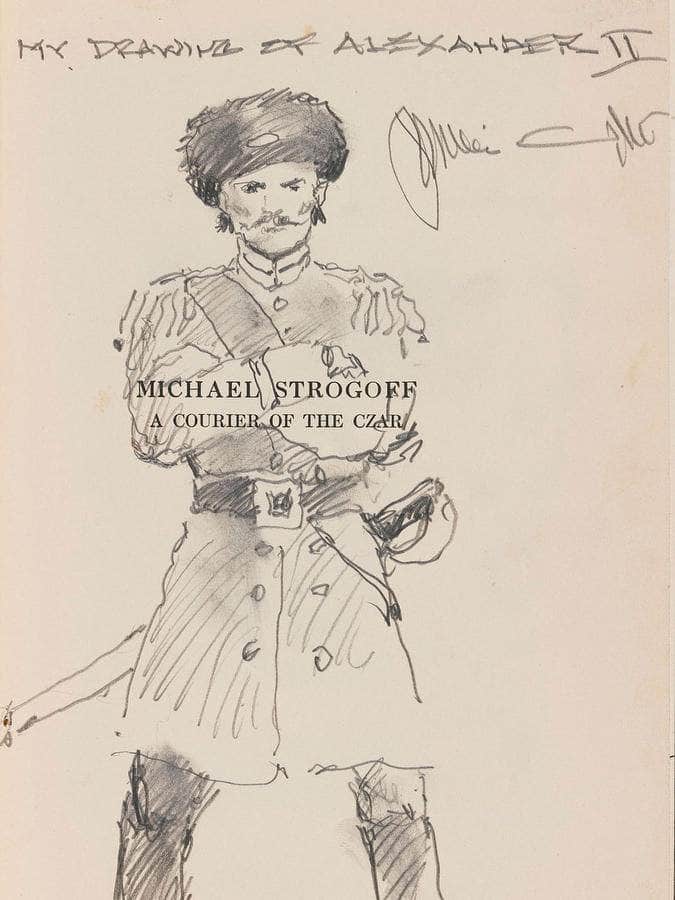 MY DRAWING OF ALEXANDER II
MICHAEL STROGOFF
A COURIER OF THE CZAR